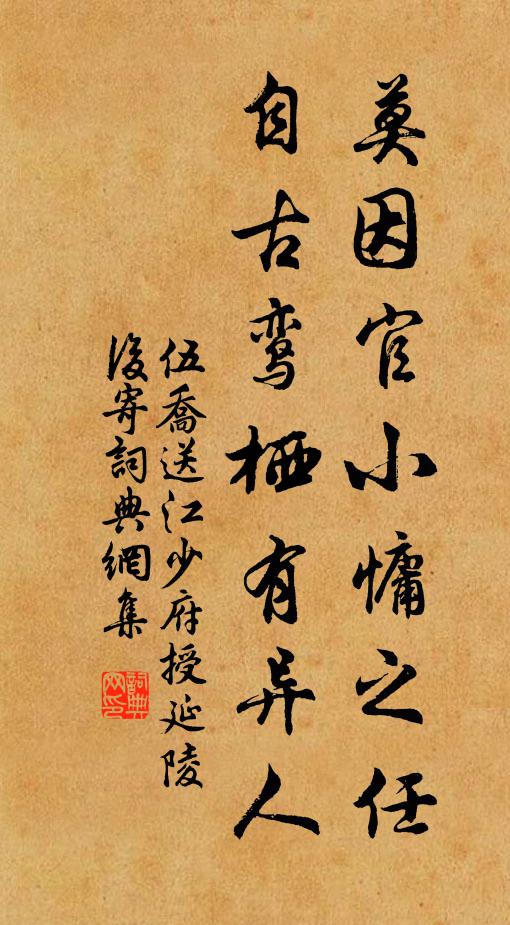 莫因官小慵之任
自古鸾栖有异人
伍喬送江少府授延陵
後寄詞典網集
詞典网印